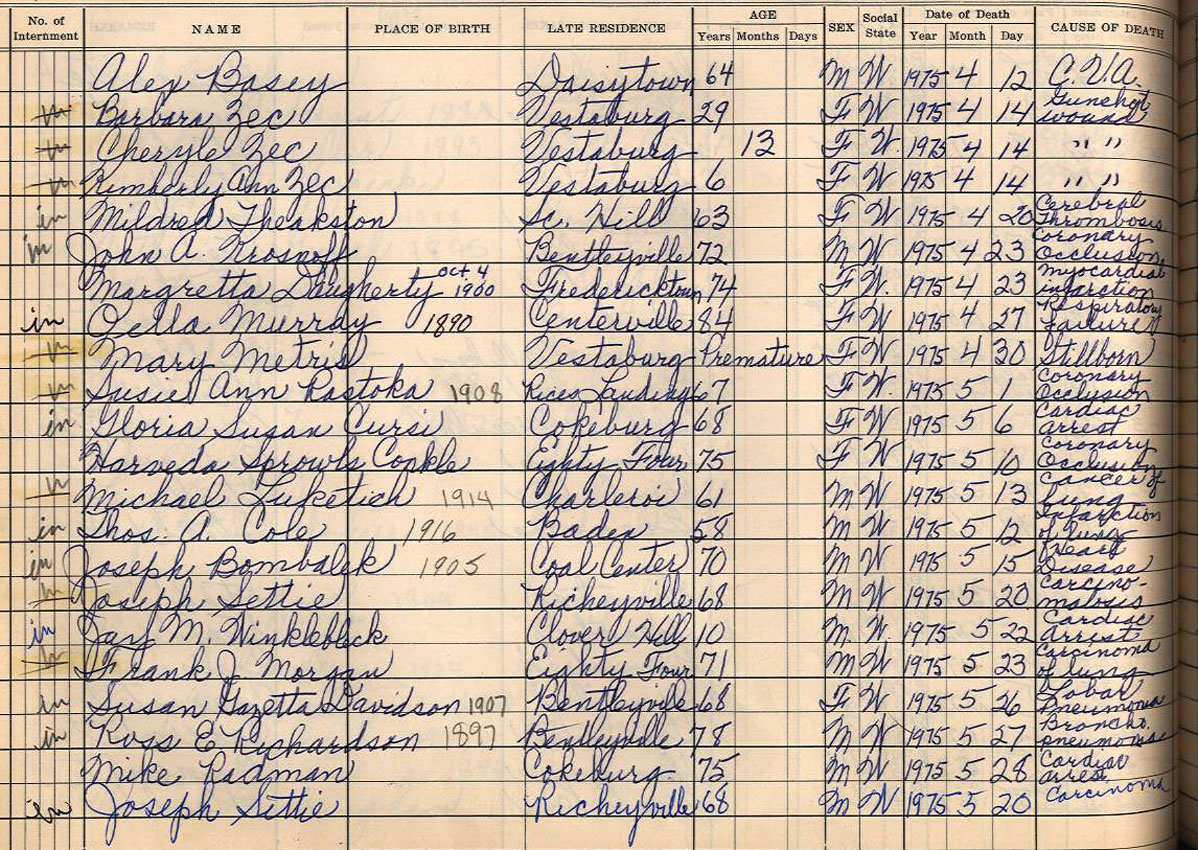 No. of Internment NAME PLACE OF BIRTH LATE RESIDENCE AGE Years Months Days SEX Social State Date of Death Year Month Day CAUSE OF DEATH
Alex Basey Daisytown 64 M W 1975 4 12 C.V.A.
in Barbara Zec Vestaburg 29 F W 1975 4 14 Gunshot wound
in Cheryle Zec Vestaburg 13 F W. 1975 4 14 " "
in Kimberly Ann Zec Vestaburg 6 F W 1975 4 14 " "
in Mildred Theakston Sc. Hill 63 F W 1975 4 20 Cerebral Thrombosis
in John A. Krosnoff Bentleyville 72 M W 1975 4 23 Coronary Occlusion
Margretta Daugherty Oct 4 1900 Fredericktown 74 F W. 1975 4 23 Myocardial infarction
in Oella Murray 1890 Centerville 84 F W 1975 4 27 Respiratory Failure
in Mary Metris Vestaburg Premature F W 1975 4 30 Stillborn
in Susie Ann Rastoka 1908 Rices Landing 67 F W. 1975 5 1 Coronary Occlusion
in Gloria Susan Cursi Cokeburg 68 F W 1975 5 6 Cardiac arrest
Harveda Sprowls Conkle Eighty Four 75 F W 1975 5 10 Coronary Occlusion
in Michael Luketich 1914 Charleroi 61 M W 1975 5 13 Cancer of lung
in Thos. A. Cole 1916 Baden 58 M W 1975 5 12 Infarction of lung
in Joseph Bombalek 1905 Coal Center 70 M W 1975 5 15 Heart Disease
in Joseph Settie Richeyville 68 M W 1975 5 20 Carcino-matosis
in Jay M. Winklebleck Clover Hill 10 M W. 1975 5 22 Cardiac Arrest
in Frank J. Morgan Eighty Four 71 M W 1975 5 23 Carcinoma of lung
in Susan Gazetta Davidson 1907 Bentleyville 68 F W 1975 5 26 Lobar Pneumonia
in Ross E Richardson 1897 Bentleyville 78 M W 1975 5 27 Broncho. pneumonia
Mike Radman Cokeburg 75 M W 1975 5 28 Cardiac arrest
in Joseph Settie Richeyville 68 M W 1975 5 20 Carcinoma